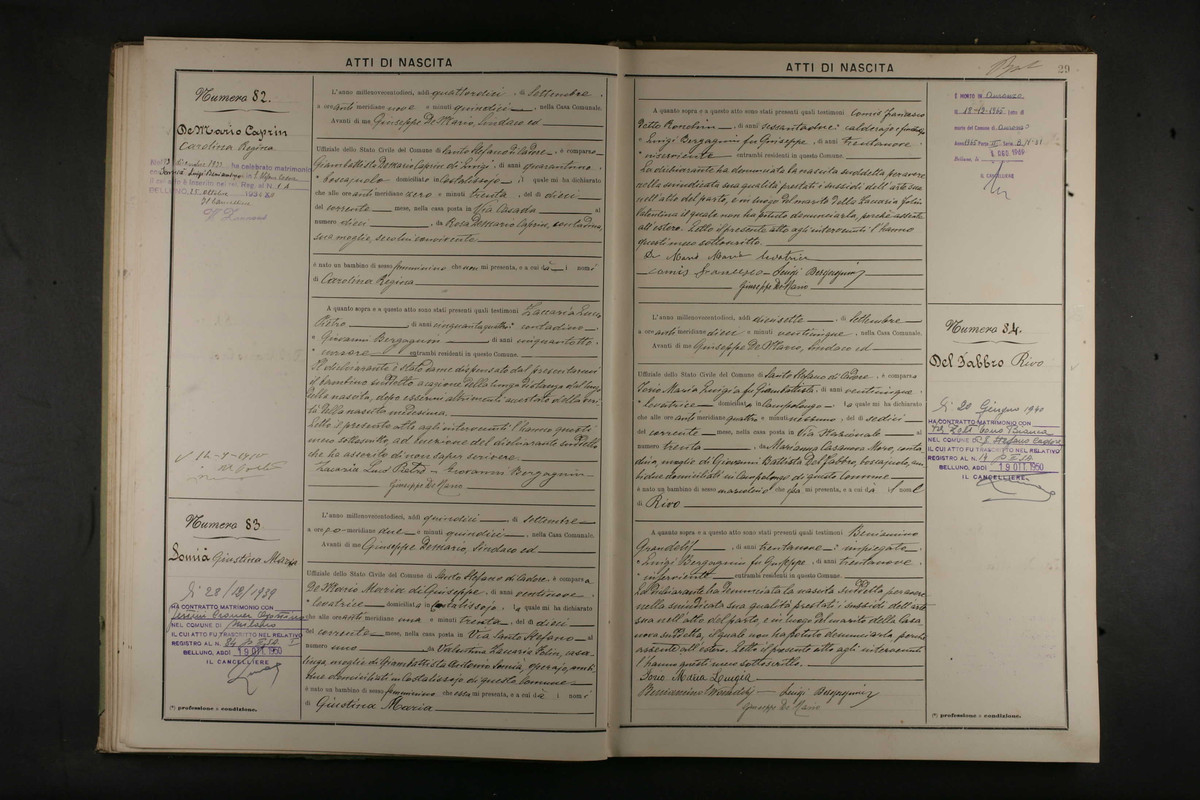 ATTI DI NASCITA
Numero 82.
De Mario Caprin
Carolina Regina
L'anno millenovecentodieci, addì quattordici, di Settembre
a ore anti meridiane nove e minuti quindici, nella Casa Comunale.
Avanti di me Giuseppe De Mario, Sindaco ed
Uffiziale dello Stato Civile del Comune di Santo Stefano di Cadore, è comparso
Giambattista De Mario Caprin di Luigi, di anni quarantuno
boscajuolo domiciliato in Costalissojo, il quale mi ha dichiarato
che alle ore anti meridiane zero e minuti trenta, del dì dieci
del corrente mese, nella casa posta in Via Casada al
numero dieci, da Rosa De Mario Caprin, contadina,
sua moglie, seco lui convivente
è nato un bambino di sesso femminino che non mi presenta, e a cui dà i nomi
di Carolina Regina
A quanto sopra e a questo atto sono stati presenti quali testimoni Zaccaria Luca
Pietro di anni cinquantaquattro, contadino
e Giovanni Bergagnin di anni cinquantotto
cursore entrambi residenti in questo Comune.
Il dichiarante è stato da me dispensato dal presentarmi
il bambino suddetto a cagione della lunga distanza del luogo
della nascita, dopo essermi altrimenti accertato della veri
tà della nascita medesima.
Letto il presente atto agli intervenuti l'hanno questi
meco sottoscritto, ad eccezione del dichiarante suddetto
che ha asserito di non saper scrivere.
Giovanni Bergagnin
Giuseppe De Mario
Numero 83
Somià Giustina Maria
Lì 28/12/1939
HA CONTRATTO MATRIMONIO CON
NEL COMUNE DI
IL CUI ATTO FU TRASCRITTO NEL RELATIVO
REGISTRO AL N.
BELLUNO, ADDÌ 19 OTT. 1960
IL CANCELLIERE
L'anno millenovecentodieci, addì quindici, di Settembre
a ore po meridiane due e minuti quindici, nella Casa Comunale.
Avanti di me Giuseppe De Mario, Sindaco ed
Uffiziale dello Stato Civile del Comune di Santo Stefano di Cadore, è comparsa
De Mario Maria di Giuseppe, di anni ventinove
levatrice domiciliata in Costalissojo, la quale mi ha dichiarato
che alle ore anti meridiane una e minuti trenta, del dì dieci
del corrente mese, nella casa posta in Via Santo Stefano al
numero uno, da Valentina Zaccaria Felin, casa
linga, moglie di Giambattista Antonio Somià, operajo, amb
due domiciliati in Costalissojo di questo Comune
è nato un bambino di sesso femminino che essa mi presenta, e a cui dà i nomi
di Giustina Maria
(*) professione o condizione.
ATTI DI NASCITA
29
A quanto sopra e a questo atto sono stati presenti quali testimoni Comis Francesco
detto Ronchin, di anni sessantadue, calderajo
e Luigi Bergagnin fu Giuseppe, di anni trentanove
inserviente entrambi residenti in questo Comune.
La dichiarante ha denunciata la nascita suddetta per avere
nella suindicata sua qualità prestati i sussidi dell'arte sua
nell'atto del parto, e in luogo del marito della Zaccaria Felin
Valentina il quale non ha potuto denunciarla, perché assente
all'estero. Letto il presente atto agli intervenuti l'hanno
questi meco sottoscritto.
De Mario Maria levatrice
Comis Francesco - Luigi Bergagnin
Giuseppe De Mario
È MORTO IN
IL CANCELLIERE
L'anno millenovecentodieci, addì diecisette, di Settembre
a ore anti meridiane dieci e minuti venticinque, nella Casa Comunale.
Avanti di me Giuseppe De Mario, Sindaco ed
Uffiziale dello Stato Civile del Comune di Santo Stefano di Cadore, è comparsa
Maria Luigia fu Giambattista, di anni ventinque
levatrice domiciliata in Campolongo, la quale mi ha dichiarato
che alle ore anti meridiane quattro e minuti nessuno, del dì sedici
del corrente mese, nella casa posta in Via Nazionale al
numero trenta, da Marianna Casanova Moro, conta
dina, moglie di Giovanni Battista Del Fabbro, boscajuolo, am
bidue domiciliati in Campolongo di questo Comune
è nato un bambino di sesso mascolino che essa mi presenta, e a cui dà il nome
di Rivo
Numero 84.
Del Fabbro Rivo
Lì 20 Giugno 1940
HA CONTRATTO MATRIMONIO CON
NEL COMUNE DI S. Stefano Cadore
IL CUI ATTO FU TRASCRITTO NEL RELATIVO
REGISTRO AL N.
BELLUNO, ADDÌ 19 OTT. 1960
IL CANCELLIERE.
A quanto sopra e a questo atto sono stati presenti quali testimoni Beniamino
Grandelis, di anni trentanove, impiegato
e Luigi Bergagnin fu Giuseppe, di anni trentanove
inserviente entrambi residenti in questo Comune.
La dichiarante ha denunciata la nascita suddetta per avere
nella suindicata sua qualità prestati i sussidi dell'arte
sua nell'atto del parto, e in luogo del marito della Casa
nova suddetta, il quale non ha potuto denunciarla, perché
assente all'estero. Letto il presente atto agli intervenuti
l'hanno questi meco sottoscritto.
Maria Luigia
Beniamino Grandelis - Luigi Bergagnin
Giuseppe De Mario
(*) professione o condizione.